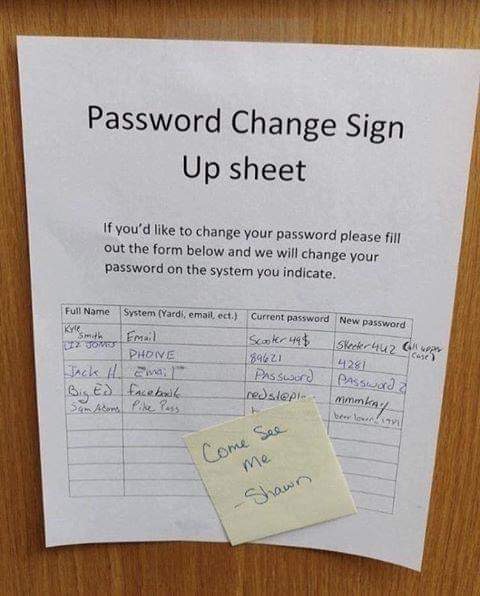 Password Change Sign
Up sheet
If you'd like to change your password please fill
out the form below and we will change your
password on the system you indicate.
Full Name System (Yardi, email, ect.) Current password New password
Kyle Smith Email Scooter 49$ Skeeter442 (all upper case)
Liz Jones PHONE 89621 4281
Jack H. Email PASSword PASSword 2
Big Ed facebook mmmkay
Sam Adams Pike Pass
Come See
me
-Shawn